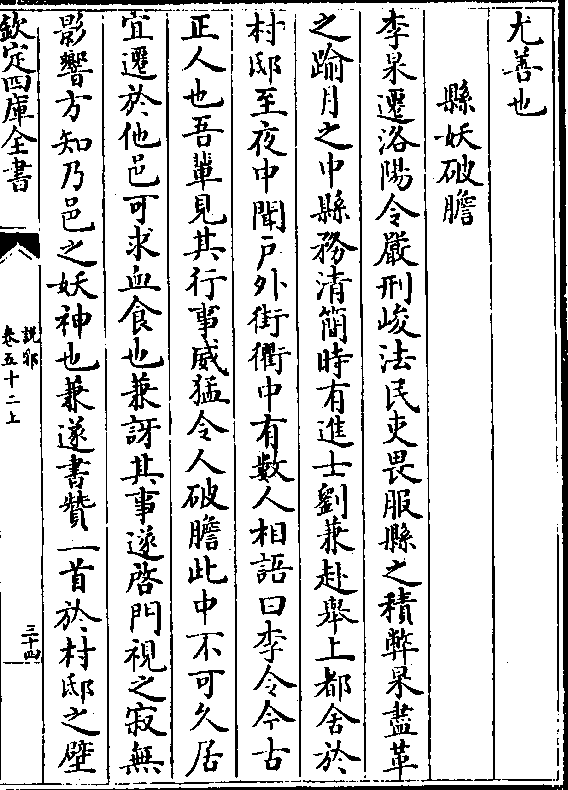 尤善也
縣妖破膽
李杲遷洛陽令嚴刑峻法民吏畏服縣之積弊杲盡革
之踰月之中縣務清簡時有進士劉兼赴舉上都舍於
村邸至夜中聞戸外街衢中有數人相語曰李令今古
正人也吾輩見其行事威猛令人破膽此中不可久居
宜遷於他邑可求血食也兼訝其事遂啓門視之寂無
影響方知乃邑之妖神也兼遂書贊一首於村邸之壁
欽定四庫全書
說郛
卷五十二上
三十四